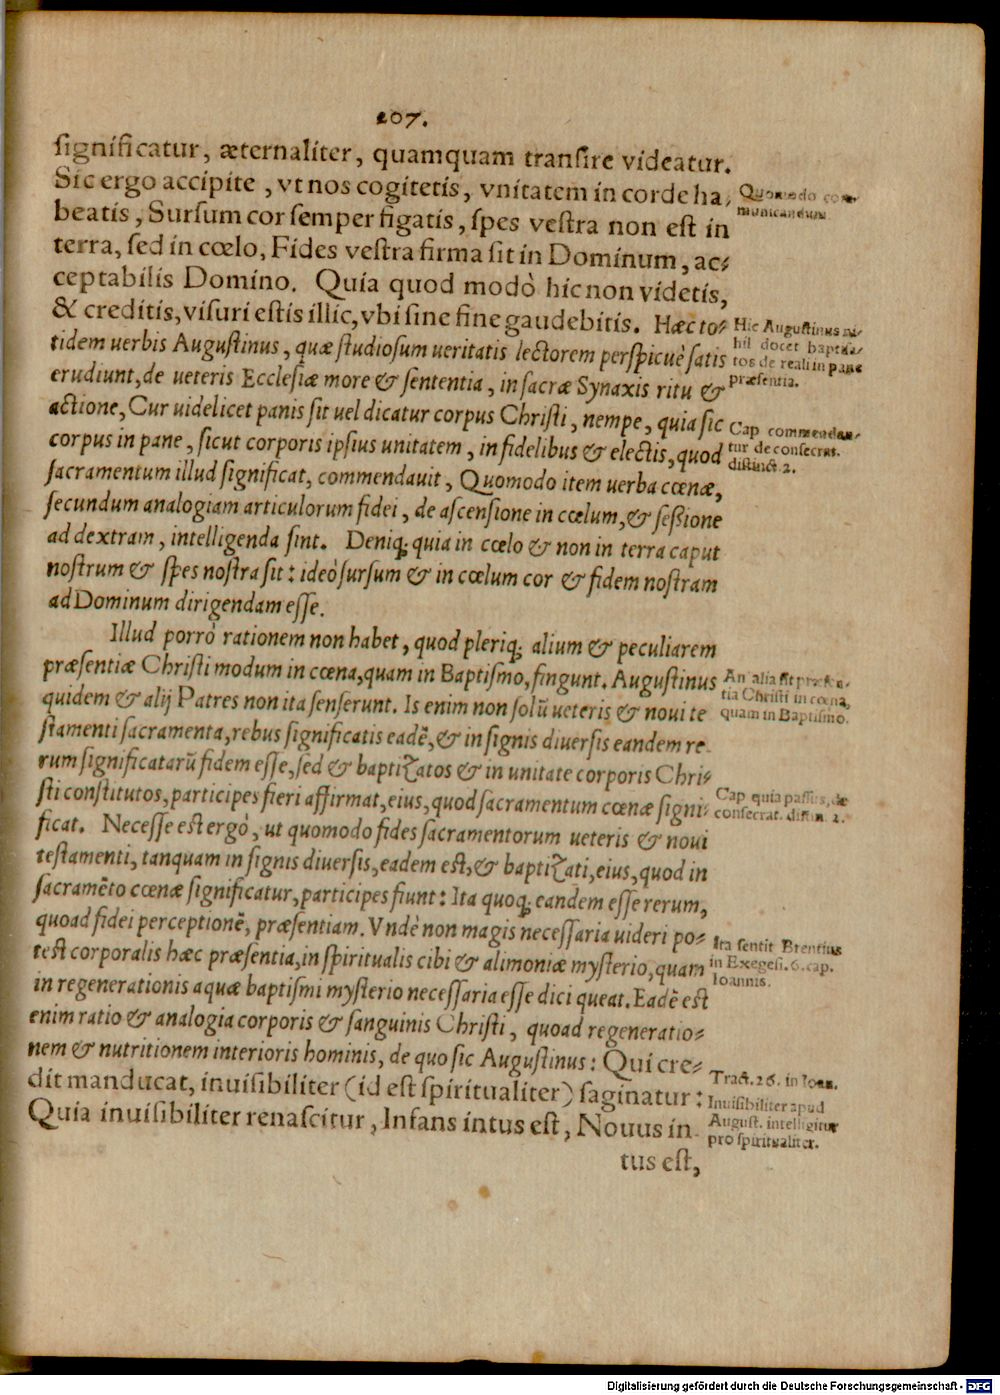 207.
ſignificatur, æternaliter, quamquam tranſire videatur.
Sic ergo accipite, vt nos cogitetis, vnitatem in corde ha⸗
beatis, Surſum cor ſemper figatis, ſpes veſtra non eſt in
terra, ſed in cœlo, Fides veſtra firma ſit in Dominum, ac⸗
ceptabilis Domino. Quia quod modò hic non videtis,
& creditis, viſuri eſtis illic, vbi ſine fine gaudebitis. Hæc to⸗
tidem uerbis Auguſtinus, quæ ſtudioſum ueritatis lectorem perſpicuè ſatis
erudiunt, de ueteris Eccleſiæ more & ſententia, in ſacræ Synaxis ritu &
actione, Cur uidelicet panis ſit uel dicatur corpus Chriſti, nempe, quia ſic
corpus in pane, ſicut corporis ipſius unitatem, in fidelibus & electis, quod
ſacramentum illud ſignificat, commendauit, Quomodo item uerba cœnæ,
ſecundum analogiam articulorum fidei, de aſcenſione in cœlum, & ſeßione
ad dextram, intelligenda ſint. Deniq; quia in cœlo & non in terra caput
noſtrum & ſpes noſtra ſit: ideò ſurſum & in cœlum cor & fidem noſtram
ad Dominum dirigendam eſſe.
Illud porrò rationem non habet, quod pleriq; alium & peculiarem
præſentiæ Chriſti modum in cœna, quam in Baptiſmo, fingunt. Auguſtinus
quidem & alij Patres non ita ſenſerunt. Is enim non ſolũ ueteris & noui te
ſtamenti ſacramenta, rebus ſignificatis eadẽ, & in ſignis diuerſis eandem re⸗
rum ſignificatarũ fidem eſſe, ſed & baptizatos & in unitate corporis Chri⸗
ſti conſtitutos, participes fieri affirmat, eius, quod ſacramentum cœnæ ſigni⸗
ficat. Neceſſe eſt ergò, ut quomodo fides ſacramentorum ueteris & noui
teſtamenti, tanquam in ſignis diuerſis, eadem eſt, & baptizati, eius, quod in
ſacramẽto cœnæ ſignificatur, participes fiunt: Ita quoq; eandem eſſe rerum,
quoad fidei perceptionẽ, præſentiam. Vndè non magis neceſſaria uideri po⸗
teſt corporalis hæc præſentia, in ſpiritualis cibi & alimoniæ myſterio, quam
in regenerationis aquæ baptiſmi myſterio neceſſaria eſſe dici queat. Eadẽ eſt
enim ratio & analogia corporis & ſanguinis Chriſti, quoad regeneratio⸗
nem & nutritionem interioris hominis, de quo ſic Auguſtinus: Qui cre⸗
dit manducat, inuiſibiliter (id eſt ſpiritualiter) ſaginatur:
Quia inuiſibiliter renaſcitur, Infans intus eſt, Nouus in⸗
tus eſt,
Quomodo com⸗
municandum
Hic Auguſtinus ni⸗
hil docet bapti⸗
tos de reali in pane
præſentia.
Cap commendan⸗
tur de conſecrat.
diſtinct. 2.
An alia ſit præſen⸗
tia Chriſti in cœna,
quam in Baptiſmo.
Cap quia paſſus, de
conſecrat. diſtin. 2.
Ita ſentit Brentius
in Exegeſi. 6. cap.
Ioannis.
Tract. 26. in Ioan.
Inuiſibiliter apud
Auguſt. intelligitur
pro ſpiritualiter.
Digitalisierung gefördert durch die Deutsche Forschungsgemeinschaft - DFG